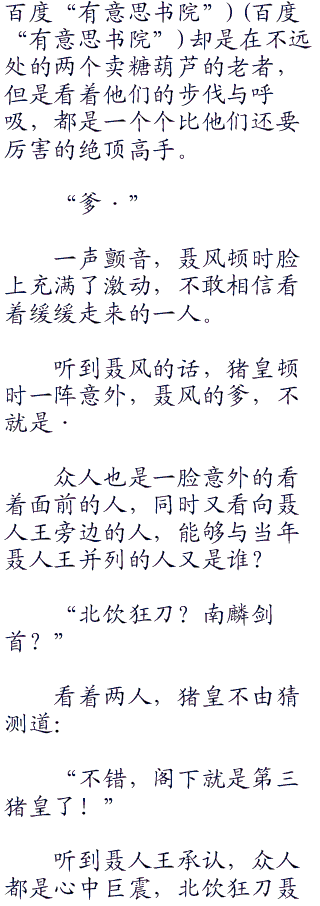 百度“有意思书院”)(百度
“有意思书院”)却是在不远
处的两个卖糖葫芦的老者，
但是看着他们的步伐与呼
吸，都是一个个比他们还要
厉害的绝顶高手。
“爹·”
一声颤音，聂风顿时脸
上充满了激动，不敢相信看
着缓缓走来的一人。
听到聂风的话，猪皇顿
时一阵意外，聂风的爹，不
就是·
众人也是一脸意外的看
着面前的人，同时又看向聂
人王旁边的人，能够与当年
聂人王并列的人又是谁？
“北饮狂刀？南麟剑
首？”
看着两人，猪皇不由猜
测道：
“不错，阁下就是第三
猪皇了！”
听到聂人王承认，众人
都是心中巨震，北饮狂刀聂